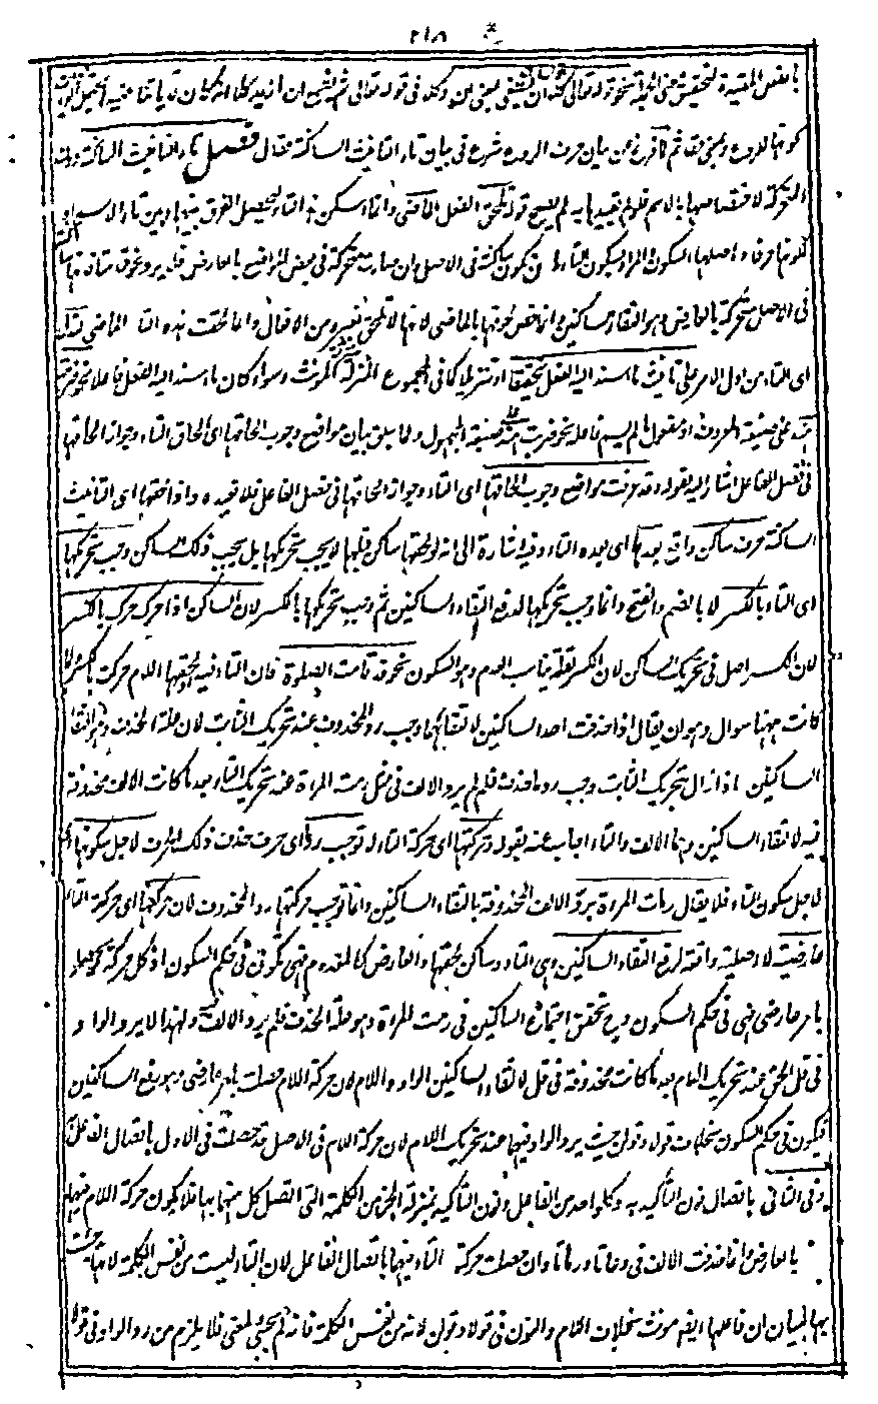 ٢١٨
بالفعل المقيدة لتحقيق معنى الجملة نحو قوله تعالى ان
كونها للردع وبمعنى حقا ثم لما فرغ عن بيان حرف الردع شرع فى بيان تاء التانيث الساكنة فقال فصل تاء التانيث الساكنة
المتحركة لاختصاصها بالاسم فلو لم يقيد بها لم يصح قوله تلحق الفعل الماضى وانما اسكن هذه التاء ليحصل الفرق بينها وبين تاء الاسم
لكونها حرفا واصلها السكون المراد بسكون التاء ان تكون ساكنة فى الاصل وان صارت متحركة فى بعض المواضع بالعارض فلا يرد نحو قالتا فانها
فى الاصل متحركة بالعارض وهو التقاء الساكنين وانما خص لحوقها بالماضى لانها لا تلحق بغيره من الافعال وانما لحقت هذه التاء الماضى لتدل
اى التاء من اول الامر على تانيث ما اسند اليه الفعل تحقيقا او تنزيلا كما فى المجموع المنزلة المؤنث وسواء كان ما اسند اليه الفعل فاعلا نحو ضربت
هند على صيغة المعروف او مفعول ما لم يسم فاعله نحو ضربت هند على صيغة المجهول ولما سبق بيان مواضع وجوب الحاقها اى الحاق التاء وجواز الحاقها
فى فصل الفاعل اشار اليه بقوله وقد عرفت مواضع وجوب الحاقها اى التاء وجواز الحاقها فى فصل الفاعل فلا نعيده واذا لحقها اى التانيث
الساكنة حرف ساكن واقع بعدها اى بعد هذه التاء وفيه اشارة الى انه لو لحقها ساكن قبلها لا يجب تحريكها بل يجب ذلك الساكن وجب تحريكها
اى التاء بالكسر لا بالضم والفتح وانما وجب تحريكها لدفع التقاء الساكنين ثم وجب تحريكها بالكسر لان الساكن اذا حرك حرك بالكسر
لان الكسر اصل فى تحريك الساكن لان الكسر لقلته يناسب العدم وهو السكون نحو قد قامت الصلوة فان التاء فيه لحقها اللام حركت بالكسر ولما
كانت ههنا سوال وهو ان يقال اذا حذفت احد الساكنين لالتقائهما وجب رد المحذوف عند تحريك الثابت لان علة الحذف وهو التقاء
الساكنين اذا زال بتحريك الثابت وجب رد ما حذف فلم لم يرد الالف فى مثل رمت المراة عند تحريك التاء بعد ما كانت الالف محذوفة
فيه لالتقاء الساكنين وهما الالف والتاء اجاب عنه بقوله وحركتها اى حركة التاء لا توجب رد اى حرف حذف ذلك الحرف لاجل سكونها اى
لاجل سكون التاء فلا يقال رمات المراة برد الالف المحذوفة بالتقاء الساكنين وانما توجب حركتها رد المحذوف لان حركتها اى حركة التاء
عارضية لا اصلية واقعة لرفع التقاء الساكنين وهى التاء وساكن لحقها والعارض كالمعدوم فهى تكون فى حكم السكون اذ كل حركة تحصل
بامر عارضى فهى فى حكم السكون وح تحقق اجتماع الساكنين فى رمت المراة وهو علة الحذف فلم يرد الالف فيه ولهذا لا يرد الواو
فى قل الحق عند تحريك اللام بعد ما كانت محذوفة فى قل لالتقاء الساكنين الواو واللام لان حركة اللام حصلت بامر عارضى وهو رفع الساكنين
فيكون فى حكم السكون بخلاف قولا وقولن حيث يرد الواو فيهما عند تحريك اللام لان حركة اللام فى الاصل قد حصلت فى الاول باتصال الفاعل
وفى الثانى باتصال نون التأكيد به وكل واحد من الفاعل ونون التأكيد بمنزلة الجزء من الكلمة التى اتصل كل منهما بها فلا يكون حركة اللام فيهما
بالعارض وانما حذفت الالف فى دعتا ورمتا وان حصلت حركة التاء فيهما باتصال الفاعل لان التاء ليست من نفس الكلمة لانها جيئت
بها لبيان ان فاعلها ايضا مونث بخلاف اللام والنون فى قولا وقولن لانه من نفس الكلمة فانه لم يجئ لمعنى فلا يلزم من رد الواو فى قولا